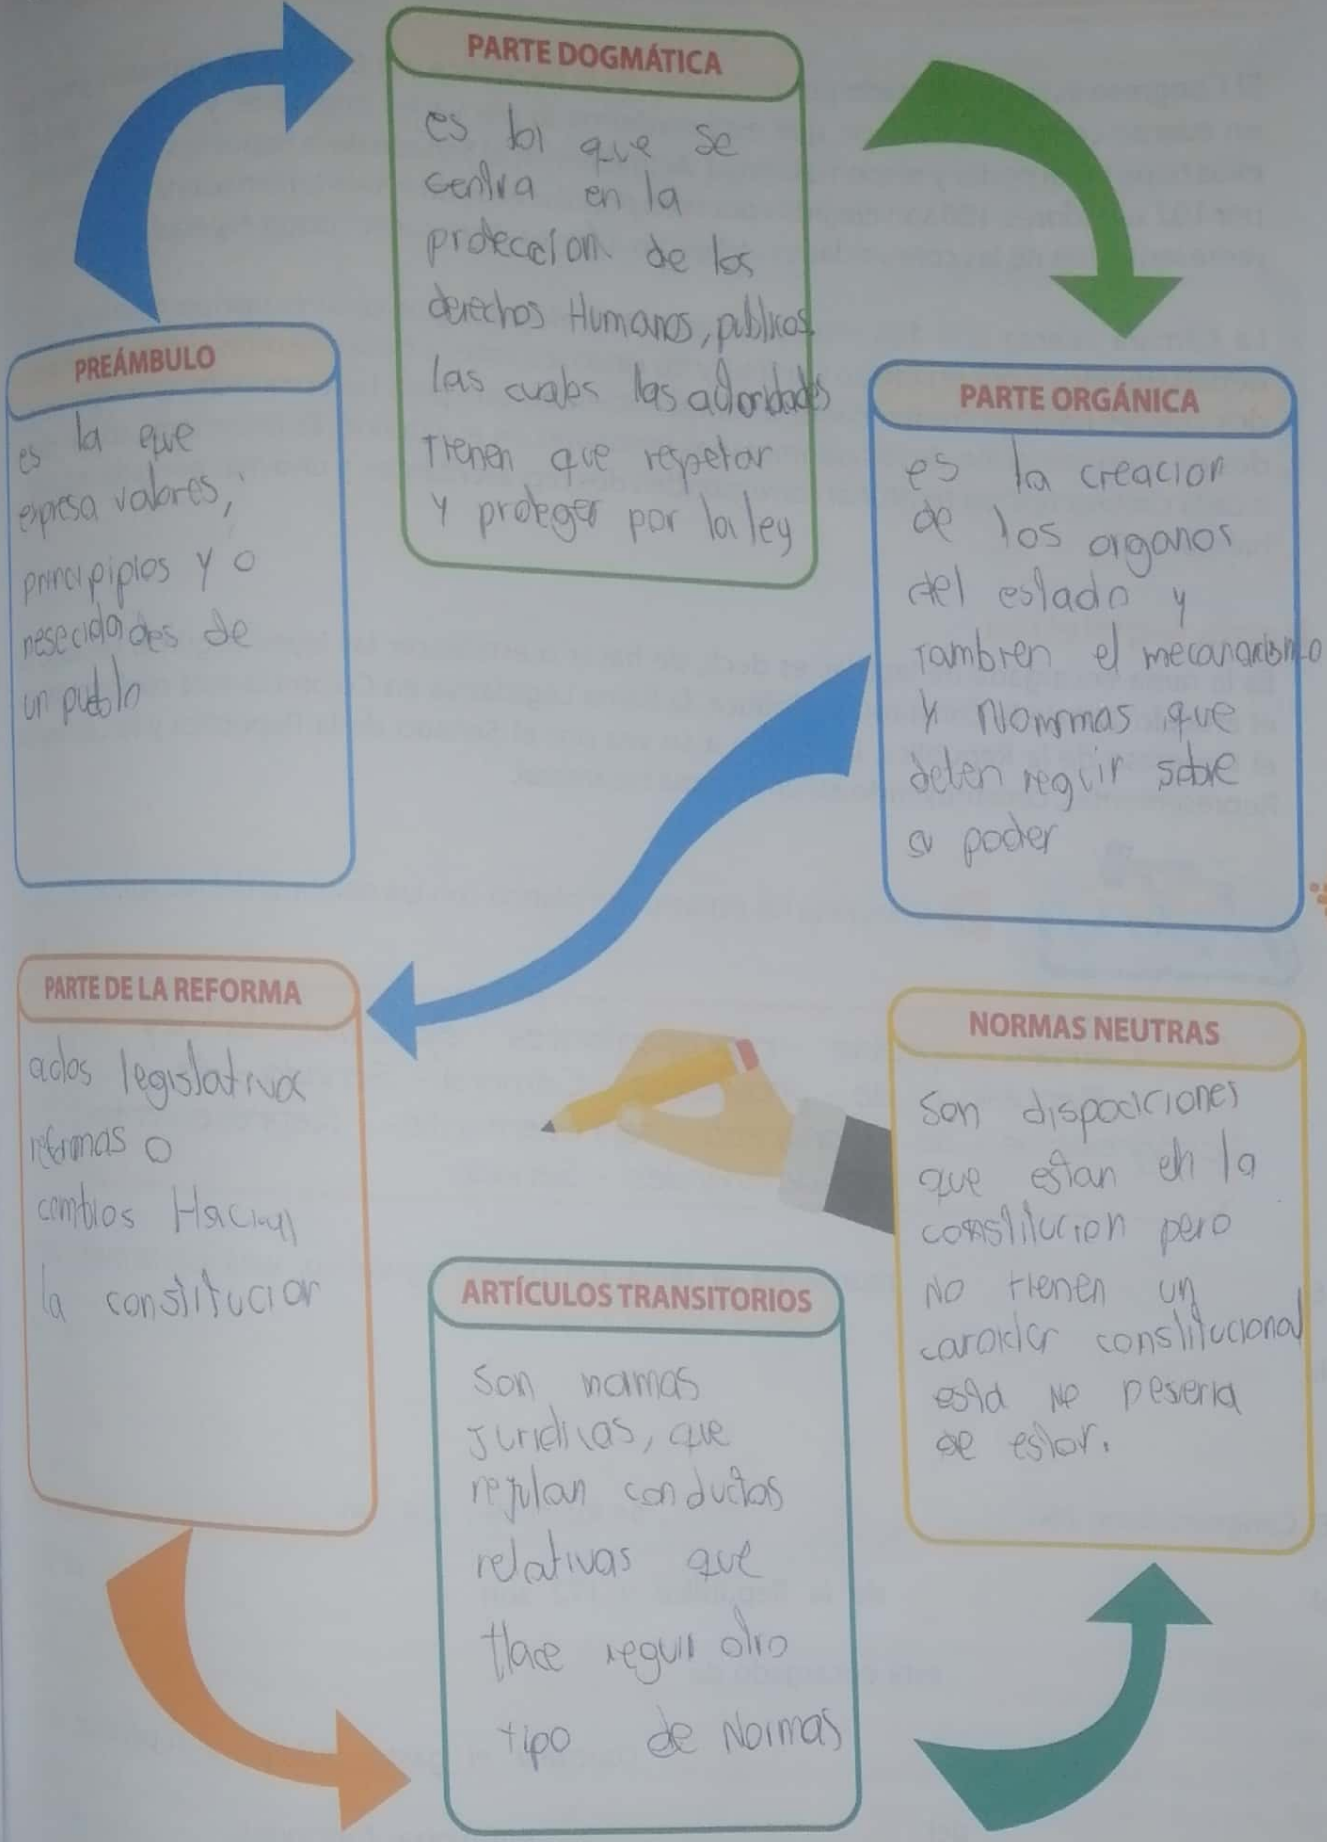 PREÁMBULO
es la que
expresa valores,
principiplos y o
nesecidades de
un pueblo
PARTE DOGMÁTICA
es la que se
centra en la
proteccion de los
derechos Humanos, publicos
las cuales las autoridades
Tienen que respetar
y proteger por la ley
PARTE ORGÁNICA
es la creacion
de los organos
del estado y
Tambien el
y Nommas que
deben reguir sobre
su poder
PARTE DE LA REFORMA
actos legislativa
reformas o
cambios Hacia
la constitucion
ARTÍCULOS TRANSITORIOS
Son normas
Juridicas, que
regulan conductas
relativas que
Hace reguir otro
tipo de Normas
NORMAS NEUTRAS
Son disposiciones
que estan en la
constitucion pero
No tienen un
caracter constitucional
de estar.